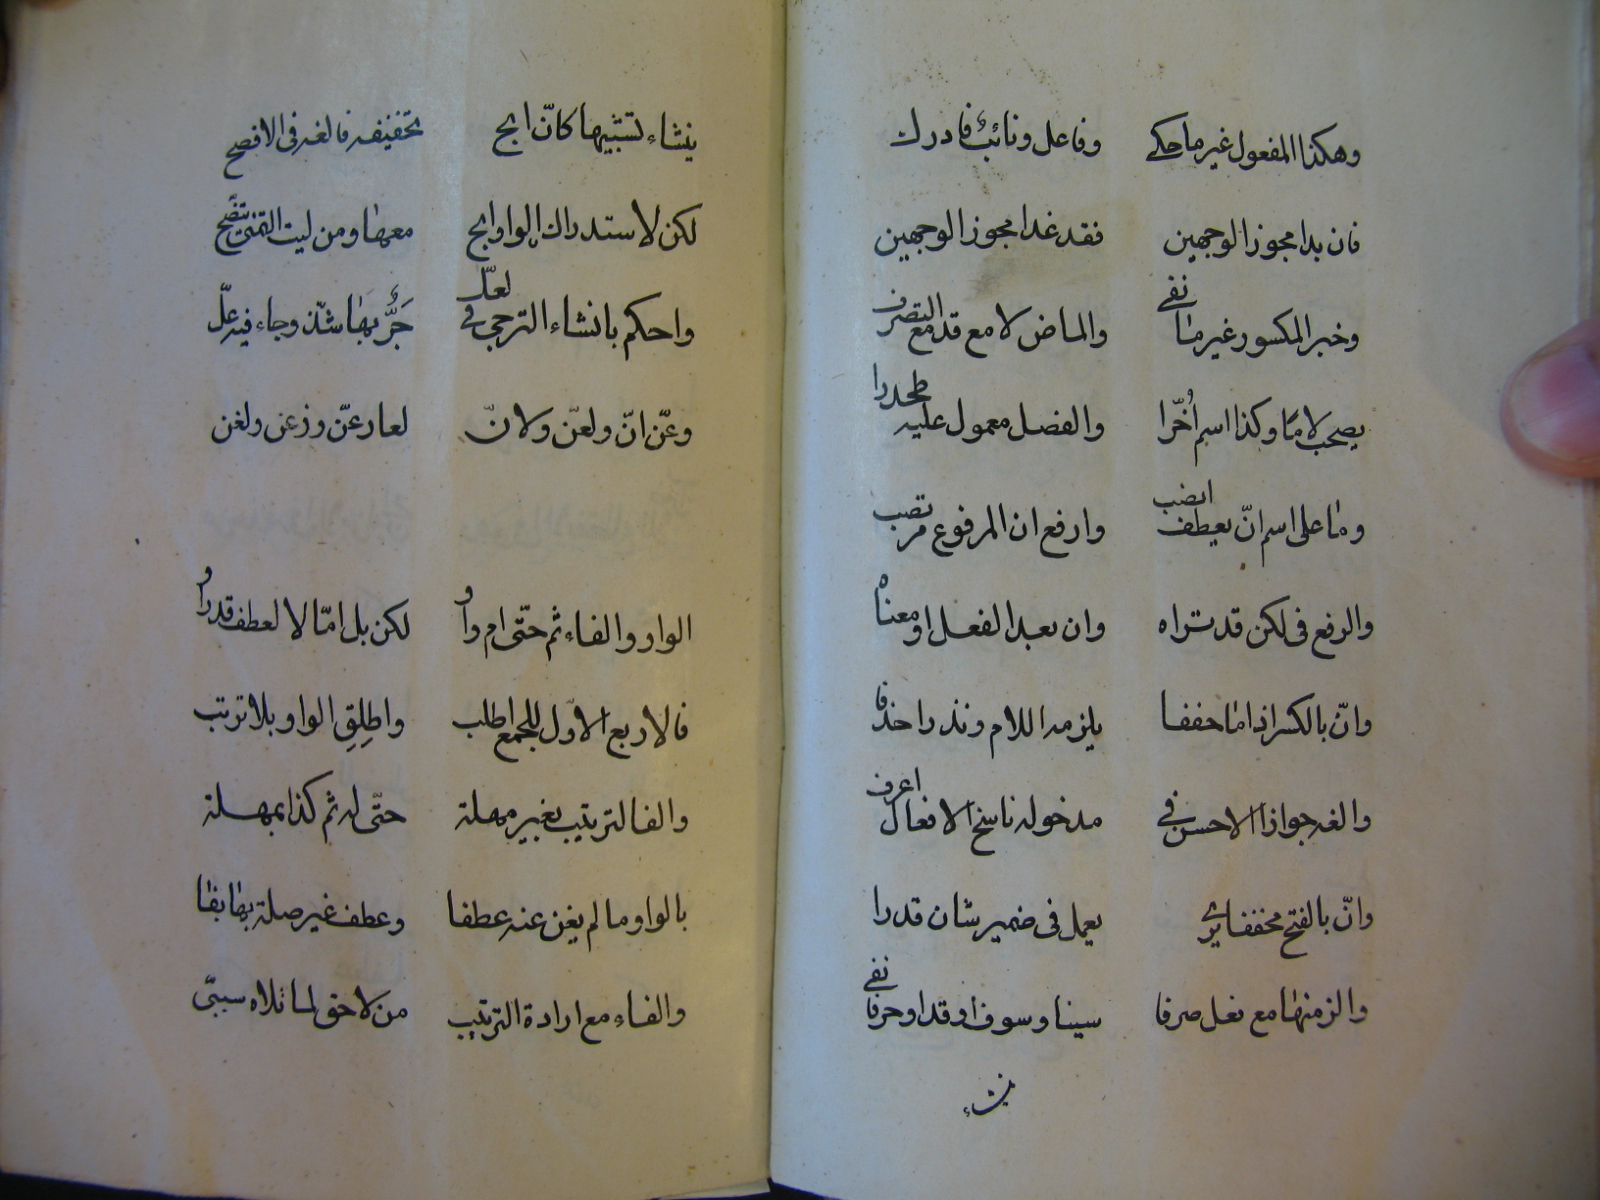 وهكذا المفعول غير ما حكي وفاعل ونائب فادرك
فان بدا مجوز الوجهين فقد غدا مجوز الوجهين
وخبر المكسور غير ما نفى والماض لا مع قد مع التصرف
يصحب لامًا وكذا اسم أُخّرا والفصل معمول عليه
وما على اسم انّ يعطف انصب وارفع ان المرفوع مر تصب
والرفع فى لكن قد تراه وان بعد الفعل او معناه
وانّ بالكسر اذا ما خففا يلزمه اللام ونذرا حذفا
والغه جوازا الاحسن في مدخوله ناسخ الافعال اعرف
وانّ بالفتح مخففا يرى يعمل فى ضمير شان قدرا
والزمنها مع فعل صرفا سينا وسوف او قد او حرفا نفى
ينشاء
ينشاء تشبيها كانّ ابح تخفيفه فالغه فى الافصح
لكن لاستدراك الواو ابح معها ومن ليت التمنى يتضح
واحكم بانشاء الترجى فى لعلّ جَرٌّ بها شذّ وجاء فيه علّ
وعنّ انّ ولعنّ ولانّ لعا رعنّ وزعن ولغن
الواو والفاء ثم حتّى ام واو لكن بل امّا لا لعطف قدروا
فالاربع الاوّل للجمع اطلب واطلِقِ الواو بلا ترتب
والفا لترتيب بغير مهلة حتّى له ثم كذا بمهلة
بالواو ما لم يغن عنه عطفا وعطف غير صلة بها بفا
والفاء مع ارادة الترتيب من لاحق لما تلاه سببّى